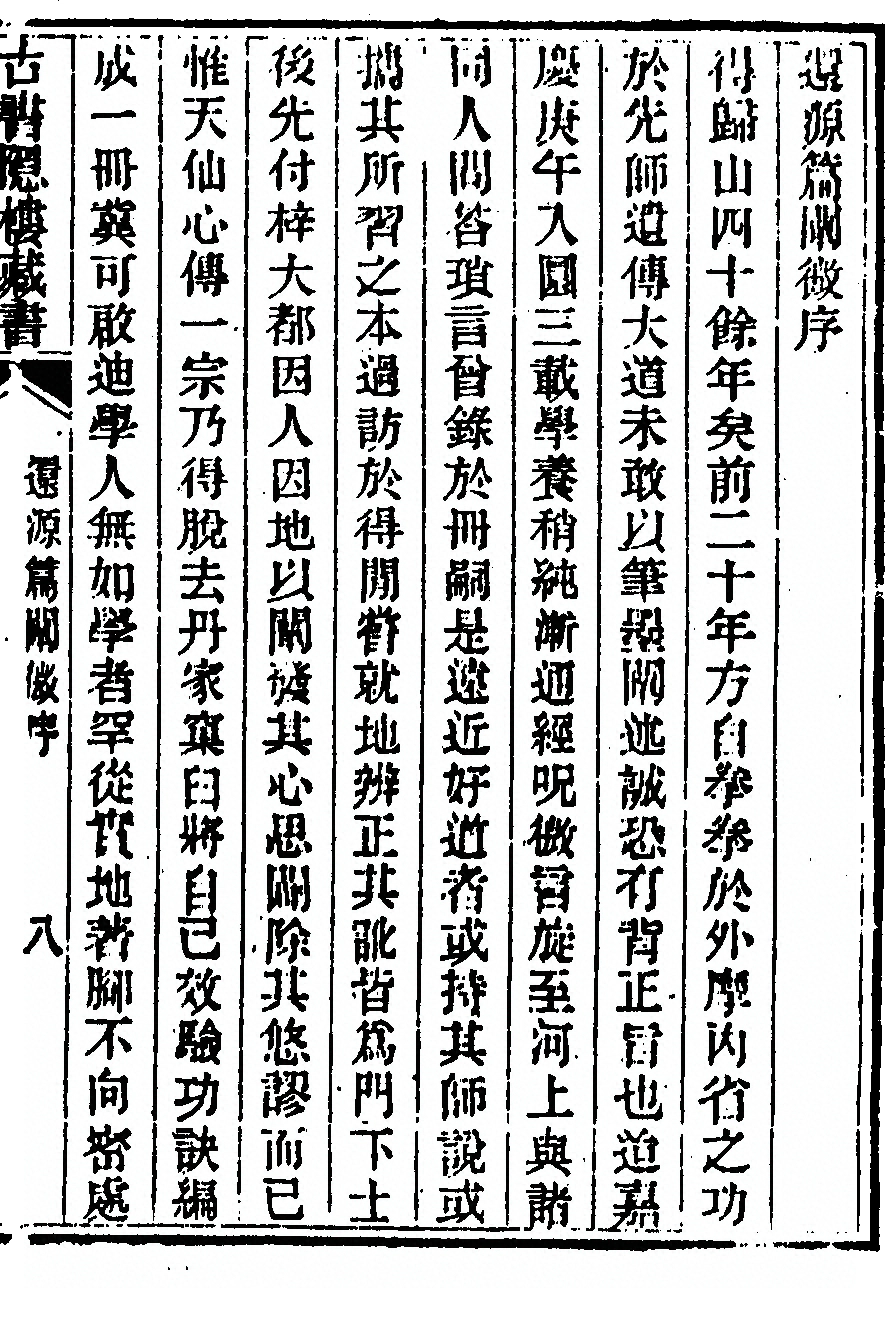 還源篇闡微序
得歸山四十餘年矣前二十年方自拳拳於外摩內省之功
於先師遺傳大道未敢以筆墨闡述誠恐有背正旨也迨嘉
慶庚午入圜三載學養稍純漸通經呪微旨旋至河上與諸
同人問答瑣言曾錄於冊嗣是遠近好道者或持其師說或
攜其所習之本過訪於得閒嘗就地辨正其訛皆爲門下士
後先付梓大都因人因地以闡發其心思闢除其悠謬而已
惟天仙心傳一宗乃得脫去丹家窠臼將自己效驗功訣編
成一冊冀可啟迪學人無如學者罕從實地著腳不向密處
古書隱樓藏書
還源篇闡微序
八